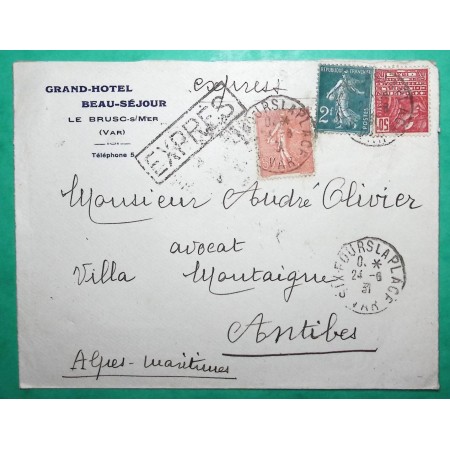 GRAND-HOTEL
BEAU-SÉJOUR
LE BRUSC-S/MER
(VAR)
Téléphone 5
express
EXPRÈS
RÉPUBLIQUE FRANÇAISE
2F
POSTES
50
FOURS LA PLACE
VAR
Monsieur André Olivier
avocat
Villa Montaigne
Antibes
Alpes-maritimes
SIX-FOURS LA PLACE
0. *
24 - 6
31
VAR